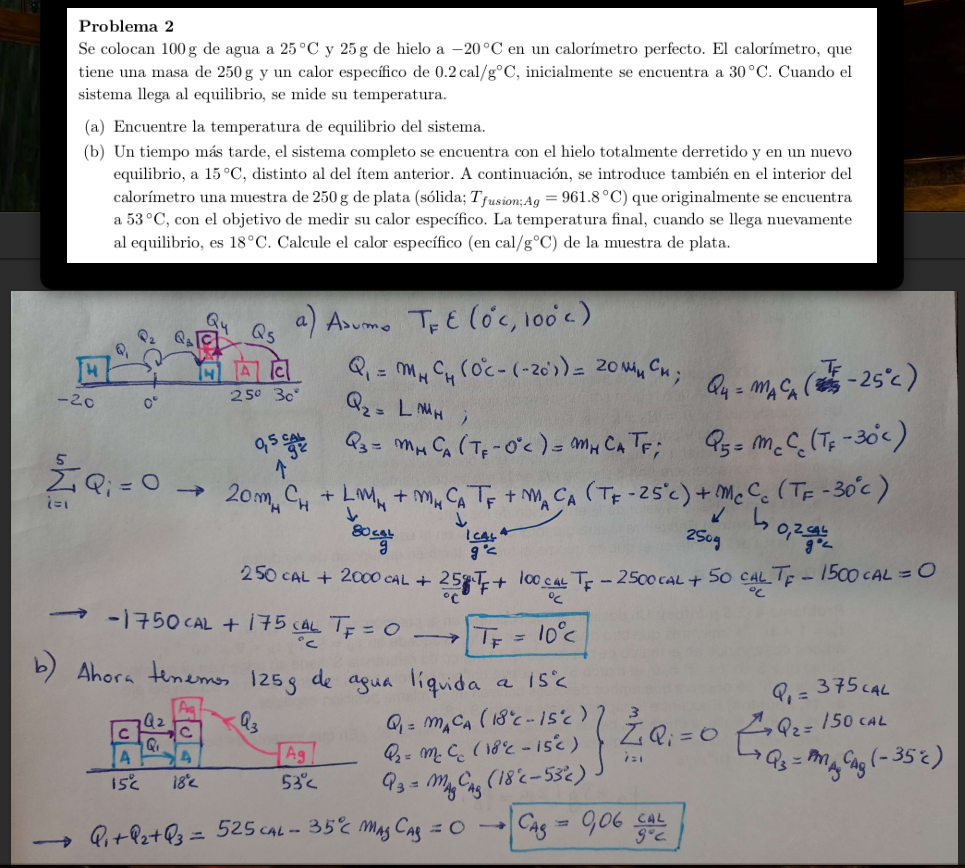 Problema 2
Se colocan 100 g de agua a 25 °C y 25 g de hielo a −20 °C en un calorímetro perfecto. El calorímetro, que
tiene una masa de 250 g y un calor específico de 0.2 cal/g°C, inicialmente se encuentra a 30 °C. Cuando el
sistema llega al equilibrio, se mide su temperatura.
(a) Encuentre la temperatura de equilibrio del sistema.
(b) Un tiempo más tarde, el sistema completo se encuentra con el hielo totalmente derretido y en un nuevo
equilibrio, a 15 °C, distinto al del ítem anterior. A continuación, se introduce también en el interior del
calorímetro una muestra de 250 g de plata (sólida; T_fusion;Ag = 961.8 °C) que originalmente se encuentra
a 53 °C, con el objetivo de medir su calor específico. La temperatura final, cuando se llega nuevamente
al equilibrio, es 18°C. Calcule el calor específico (en cal/g°C) de la muestra de plata.
a) Asumo T_F ∈ (0°C, 100°C)
Q1 Q2 Q3 Q4 Q5
H C A H A C
-20 0° 25° 30°
Q_1 = m_H C_H (0°C - (-20°)) = 20 m_H C_H ;
Q_2 = L m_H ;
Q_3 = m_H C_A (T_F - 0°C) = m_H C_A T_F ;
Q_4 = m_A C_A (T_F - 25°C)
Q_5 = m_C C_C (T_F - 30°C)
0,5 CAL/g°C
5
Σ Q_i = 0 → 20 m_H C_H + L M_H + m_H C_A T_F + m_A C_A (T_F - 25°C) + m_C C_C (T_F - 30°C)
i=1
80 CAL/g 1 CAL/g°C 250g 0,2 CAL/g°C
250 CAL + 2000 CAL + 25 T_F/°C + 100 CAL/°C T_F - 2500 CAL + 50 CAL/°C T_F - 1500 CAL = 0
→ -1750 CAL + 175 CAL/°C T_F = 0 → T_F = 10°C
b) Ahora tenemos 125g de agua líquida a 15°C
C Q2 Ag C Q3
A Q1 A Ag
15°C 18°C 53°C
Q_1 = m_A C_A (18°C - 15°C)
Q_2 = m_C C_C (18°C - 15°C)
Q_3 = m_Ag C_Ag (18°C - 53°C)
3
Σ Q_i = 0
i=1
Q_1 = 375 CAL
Q_2 = 150 CAL
Q_3 = m_Ag C_Ag (-35°C)
→ Q_1 + Q_2 + Q_3 = 525 CAL - 35°C m_Ag C_Ag = 0 → C_Ag = 0,06 CAL/g°C